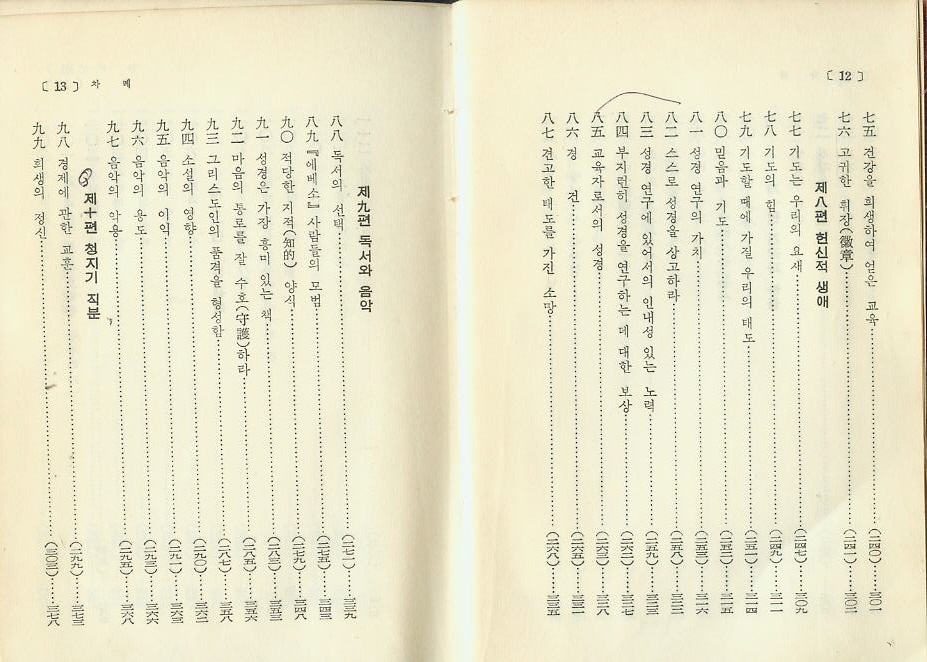 〔 12 〕
七五 건강을 희생하여 얻은 교육……(二四○)……三○一
七六 고귀한 휘장(徽章)……(二四一)……三○二
제八편 헌신적 생애
七七 기도는 우리의 요새……(二四七)……三○九
七八 기도의 힘……(二四九)……三一一
七九 기도할 때에 가질 우리의 태도……(二五一)……三一四
八○ 믿음과 기도……(二五二)……三一五
八一 성경 연구의 가치……(二五三)……三一六
八二 스스로 성경을 상고하라……(二五八)……三二二
八三 성경 연구에 있어서의 인내성 있는 노력……(二五九)……三二三
八四 부지런히 성경을 연구하는 데 대한 보상……(二六二)……三二七
八五 교육자로서의 성경……(二六三)……三二八
八六 경 건……(二六五)……三三一
八七 견고한 태도를 가진 소망……(二六八)……三三五
〔 13 〕 차 례
제九편 독서와 음악
八八 독서의 선택……(二七一)……三三九
八九 『에베소』 사람들의 모범……(二七五)……三四三
九○ 적당한 지적(知的) 양식……(二七九)……三四八
九一 성경은 가장 흥미 있는 책……(二八三)……三五三
九二 마음의 통로를 잘 수호(守護)하라……(二八五)……三五六
九三 그리스도인의 품격을 형성함……(二八七)……三五八
九四 소설의 영향……(二九○)……三六二
九五 음악의 이익……(二九一)……三六三
九六 음악의 용도……(二九三)……三六六
九七 음악의 악용……(二九五)……三六八
제十편 청지기 직분
九八 경제에 관한 교훈……(二九九)……三七三
九九 희생의 정신……(三○三)……三七八